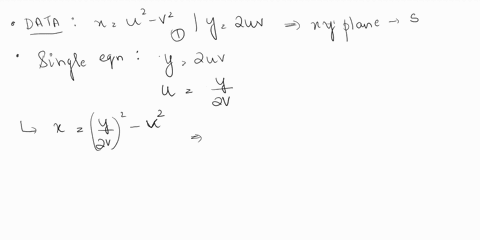 • DATA : x = u² - v² ① | y = 2uv ⇒ xy plane → s
• Single eqn : y = 2uv
u = y/2v
↳ x = (y/2v)² - v² ⇒